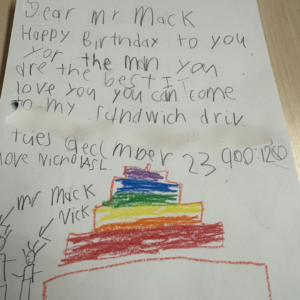 Dear Mr Mack
Happy Birthday to you
yor the man you
are the best I
love you you can come
to my sandwich driv
tues decimber 23 900:1200
love Nicholas L.
mr Mack
Nick